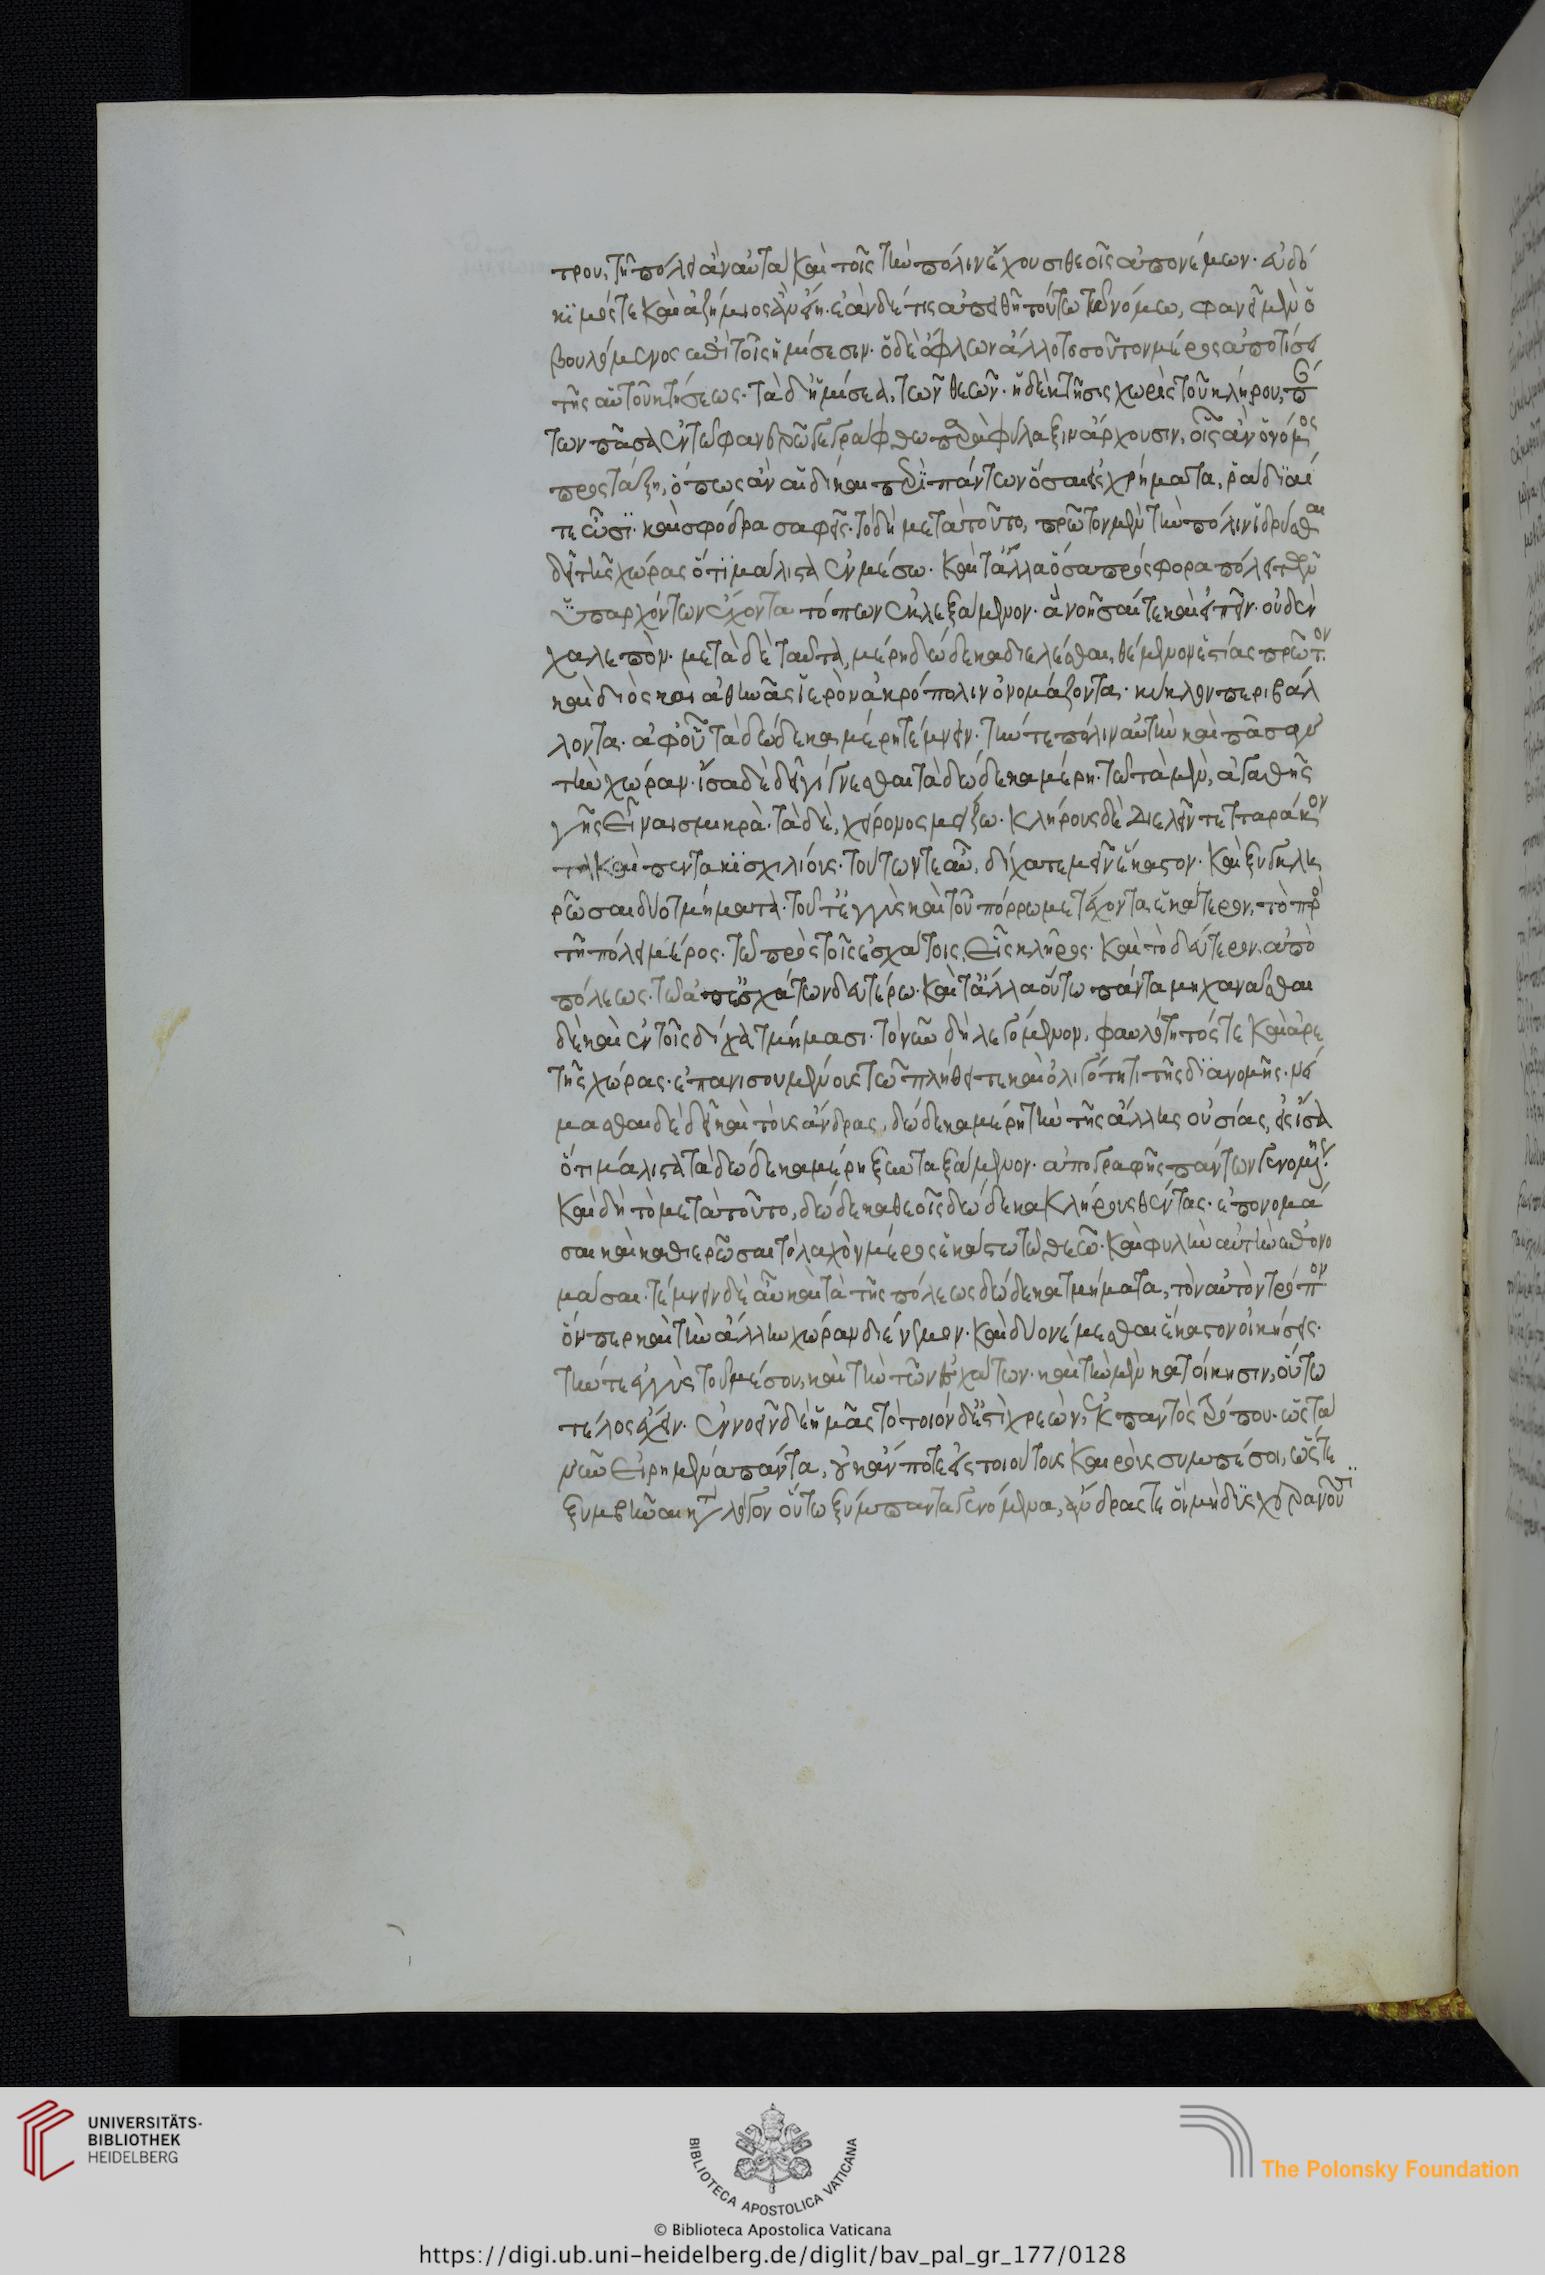 τρου, τῆ πόλει ἂν αὐτὰ καὶ τοῖς τὴν πόλιν ἔχουσι θεοῖς ἀπονέμων· εὐδό
κϊμός τε καὶ ἀζήμιος ἂν εἴη· ἐὰν δέ τις ἀπειθῆ τούτω τῶ νόμω, φανεῖ μὲν ὁ
βουλόμενος ἐπὶ τοῖς ἡμίσεσιν· ὁ δὲ ὀφλὼν ἄλλο τοσοῦτον μέρος ἀποτίσει
τῆς αὑτοῦ κτήσεως· τὰ δ' ἡμίσεα, τῶν θεῶν· ἡ δὲ κτῆσις χωρὶς τοῦ κλήρου, π
των πᾶσα ἐν τῶ φανερῶ γεγράφθω παρὰ φύλαξιν ἄρχουσιν, οἷς ἂν ὁ νόμος
προστάξη, ὅπως ἂν αἱ δίκαι περὶ πάντων ὅσαι εἰς χρήματα, ῥάδϊαί
τε ὦσϊ· καὶ σφόδρα σαφεῖς· τὸ δὴ μετὰ τοῦτο, πρῶτον μὲν τὴν πόλιν ἱδρῦσθαι
δεῖ τῆς χώρας ὅτϊ μάλιστα ἐν μέσω· καὶ τἄλλα ὅσα πρόσφορα πόλει τῶν
ὑπαρχόντων ἔχοντα τόπων ἐκλεξάμενον· ἃ νοῆσαί τε καὶ εἰπεῖν· οὐδὲν
χαλεπόν· μετὰ δὲ ταῦτα, μέρη δώδεκα διελέσθαι, θέμενον ἑστίας πρῶτον
καὶ διὸς καὶ ἀθηνᾶς ἱερὸν ἀκρόπολιν ὀνομάζοντας· κύκλον περιβάλ
λοντα· ἀφ' οὗ τὰ δώδεκα μέρη τέμνειν· τήν τε πόλιν αὐτὴν καὶ πᾶσαν
τὴν χώραν· ἴσα δὲ δεῖ γίγνεσθαι τὰ δώδεκα μέρη· τῶ τὰ μὲν, ἀγαθῆς
γῆς εἶναι σμικρὰ· τὰ δὲ, χείρονος μείζω· κλήρους δὲ διελεῖν τετταράκον
τα καὶ πεντακϊσχιλίους· τούτων τε αὖ, δίχα τεμεῖν ἕκαστον· καὶ ξυγκλη
ρῶσαι δύο τμήματα· τοῦ τ' ἐγγὺς καὶ τοῦ πόρρω μετέχοντα ἑκάτερον, τὸ πρὸς
τῆ πόλει μέρος· τῶ πρὸς τοῖς ἐσχάτοις, εἷς κλῆρος· καὶ τὸ δεύτερον ἀπὸ
πόλεως· τῶ ἀπ' ἐσχάτων δευτέρω· καὶ τἄλλα οὕτω πάντα μηχανᾶσθαι
δὲ καὶ ἐν τοῖς δίχα τμήμασι· τὸ νῦν δὴ λεγόμενον, φαυλότητός τε καὶ ἀρε
τῆς χώρας· ἐπανισουμένους τῶ πλήθει τε καὶ ὀλιγότητι τῆς δϊανομῆς· νεί
μασθαι δὲ δεῖ καὶ τοὺς ἄνδρας, δώδεκα μέρη τὴν τῆς ἄλλης οὐσίας, εἰς ἴσα
ὅτι μάλιστα τὰ δώδεκα μέρη ξυνταξάμενον· ἀπογραφῆς πάντων γενομένης·
καὶ δὴ τὸ μετὰ τοῦτο, δώδεκα θεοῖς δώδεκα κλήρους θέντας· ἐπονομά
σαι καὶ καθιερῶσαι τὸ λαχὸν μέρος ἑκάστω τῶ θεῶ· καὶ φυλὴν αὐτὴν ἐπονο
μάσαι· τέμνειν δὲ αὖ καὶ τὰ τῆς πόλεως δώδεκα τμήματα, τὸν αὐτὸν τρόπον
ὅνπερ καὶ τὴν ἄλλην χώραν διένεμον· καὶ δύο νέμεσθαι ἕκαστον οἰκήσεις·
τήν τε ἐγγὺς τοῦ μέσου, καὶ τὴν τῶν ἐσχάτων· καὶ τὴν μὲν κατοίκησιν, οὕτω
τέλος ἔχειν· ἐννοεῖν δὲ ἡμᾶς τὸ τοιόνδ' ἐστὶ χρεὼν, ἐκ παντὸς τρόπου· ὡς τὰ
νῦν εἰρημένα πάντα, οὐκ ἄν ποτε εἰς τοιούτους καιροὺς συμπέσοι, ὥστε
ξυμβῆναι κατὰ λόγον οὕτω ξύμπαντα γενόμενα, ἄνδρας τε οἳ μὴ δυσχερανοῦσι
UNIVERSITÄTS-
BIBLIOTHEK
HEIDELBERG
BIBLIOTECA APOSTOLICA VATICANA
The Polonsky Foundation
© Biblioteca Apostolica Vaticana
https://digi.ub.uni-heidelberg.de/diglit/bav_pal_gr_177/0128